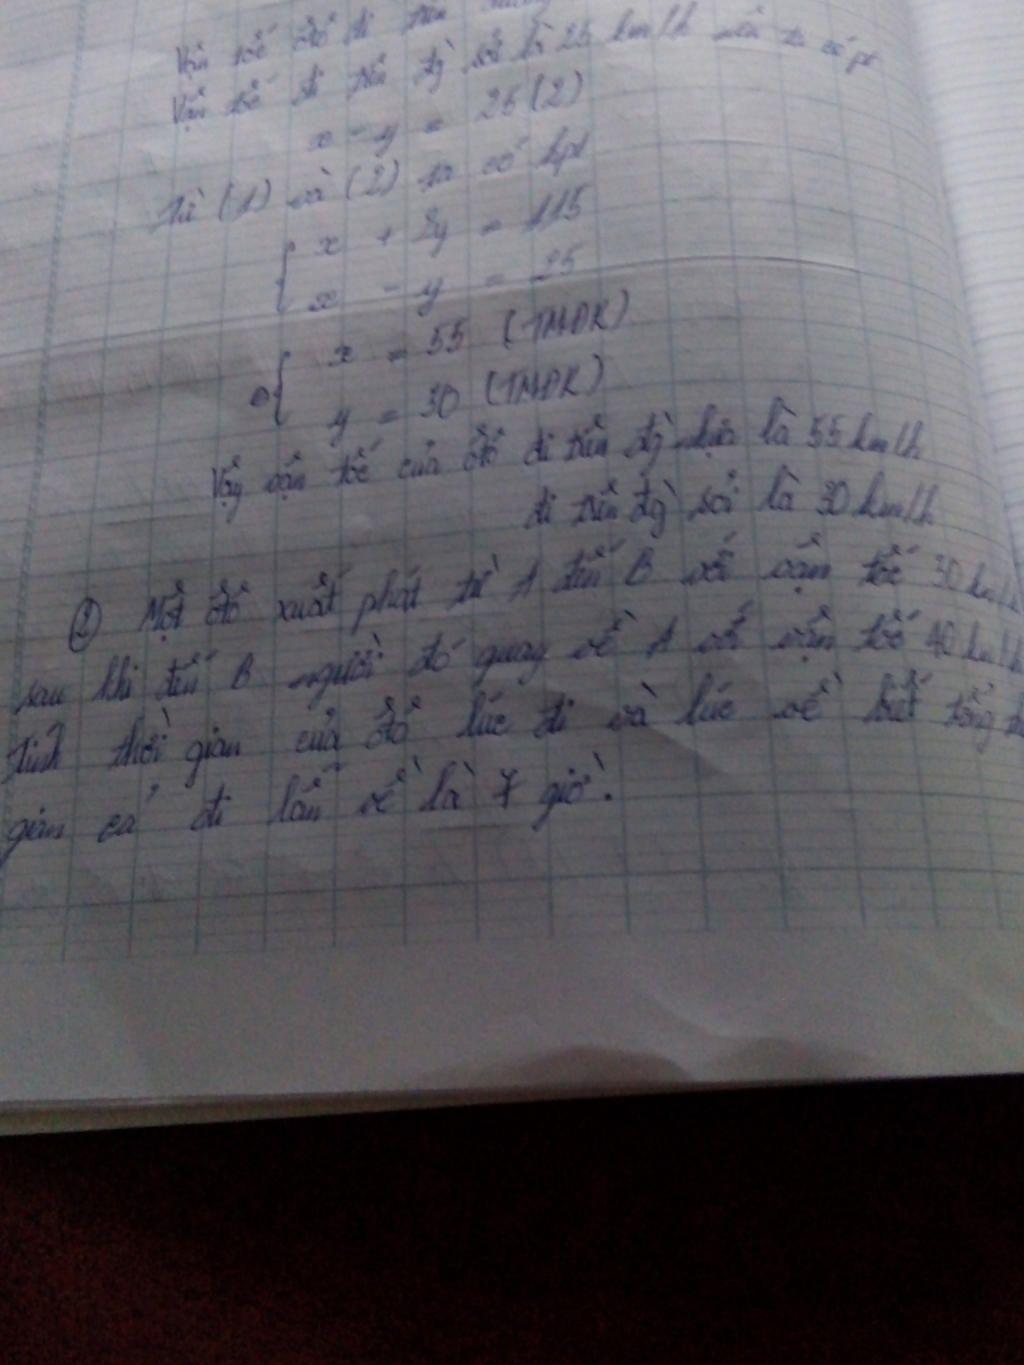 Vận tốc ôtô đi trên
Vận tốc đi trên đg sỏi là 25 km/h nên ta có pt
x - y = 25 (2)
Từ (1) và (2) ta có hpt
{ x + 2y = 115
x - y = 25
{ x = 55 (TMĐK)
y = 30 (TMĐK)
Vậy vận tốc của ôtô đi trên đg nhựa là 55 km/h
đi trên đg sỏi là 30 km/h
② Một ôtô xuất phát từ A đến B với vận tốc 30 km/h
sau khi đến B người đó quay về A với vận tốc 40 km/h
tính thời gian của ôtô lúc đi và lúc về biết tổng
gian cả đi lẫn về là 7 giờ.